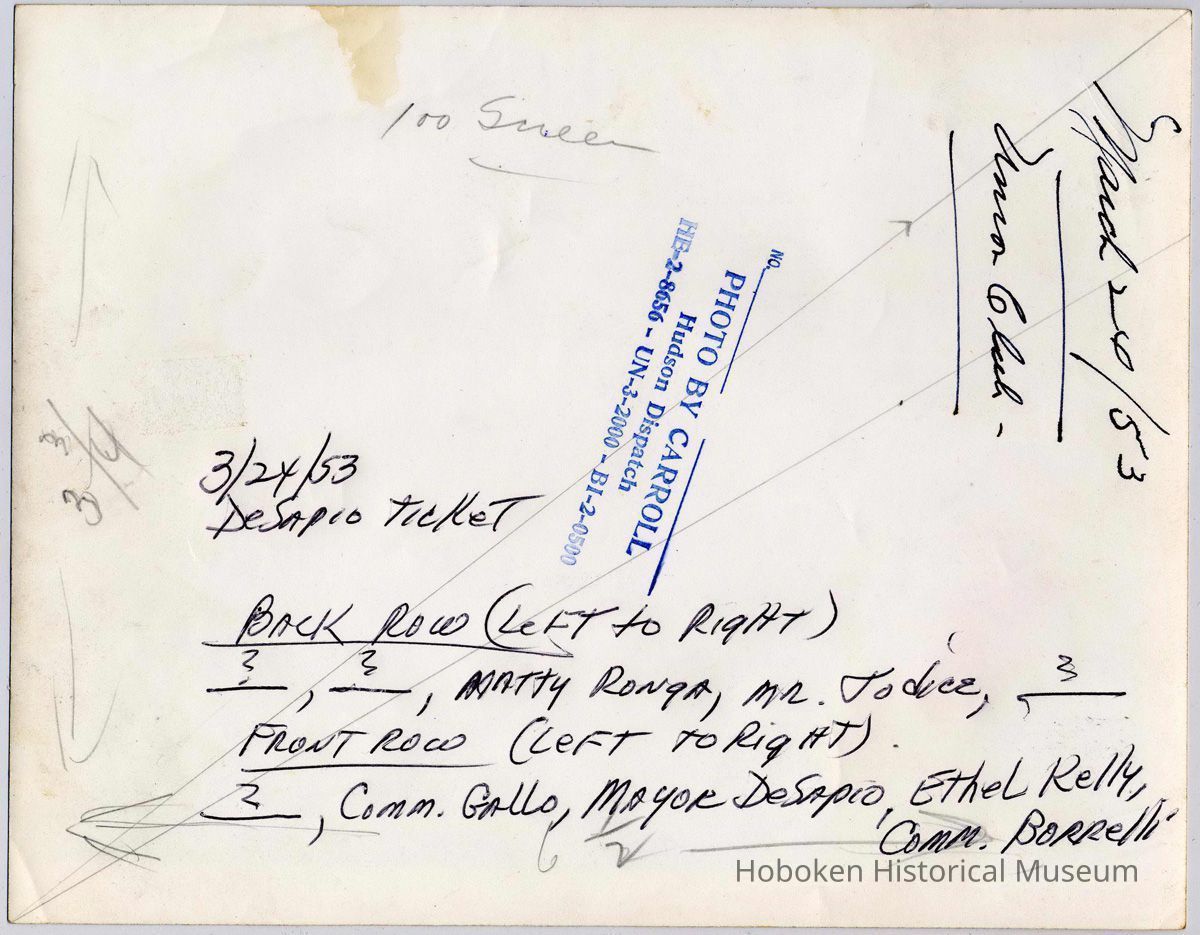 100 Screen
March 24/53
Union Club -
NO.
PHOTO BY CARROLL
Hudson Dispatch
HE-2-8656 - UN-3-2000 - BI-2-0500
3/24/53
DeSapio Ticket
Back Row (Left to Right)
? , ? , Matty Ronga, Mr. Jodice, ?
Front Row (Left to Right).
? , Comm. Gallo, Mayor DeSapio, Ethel Kelly,
Comm. Borrelli
Hoboken Historical Museum